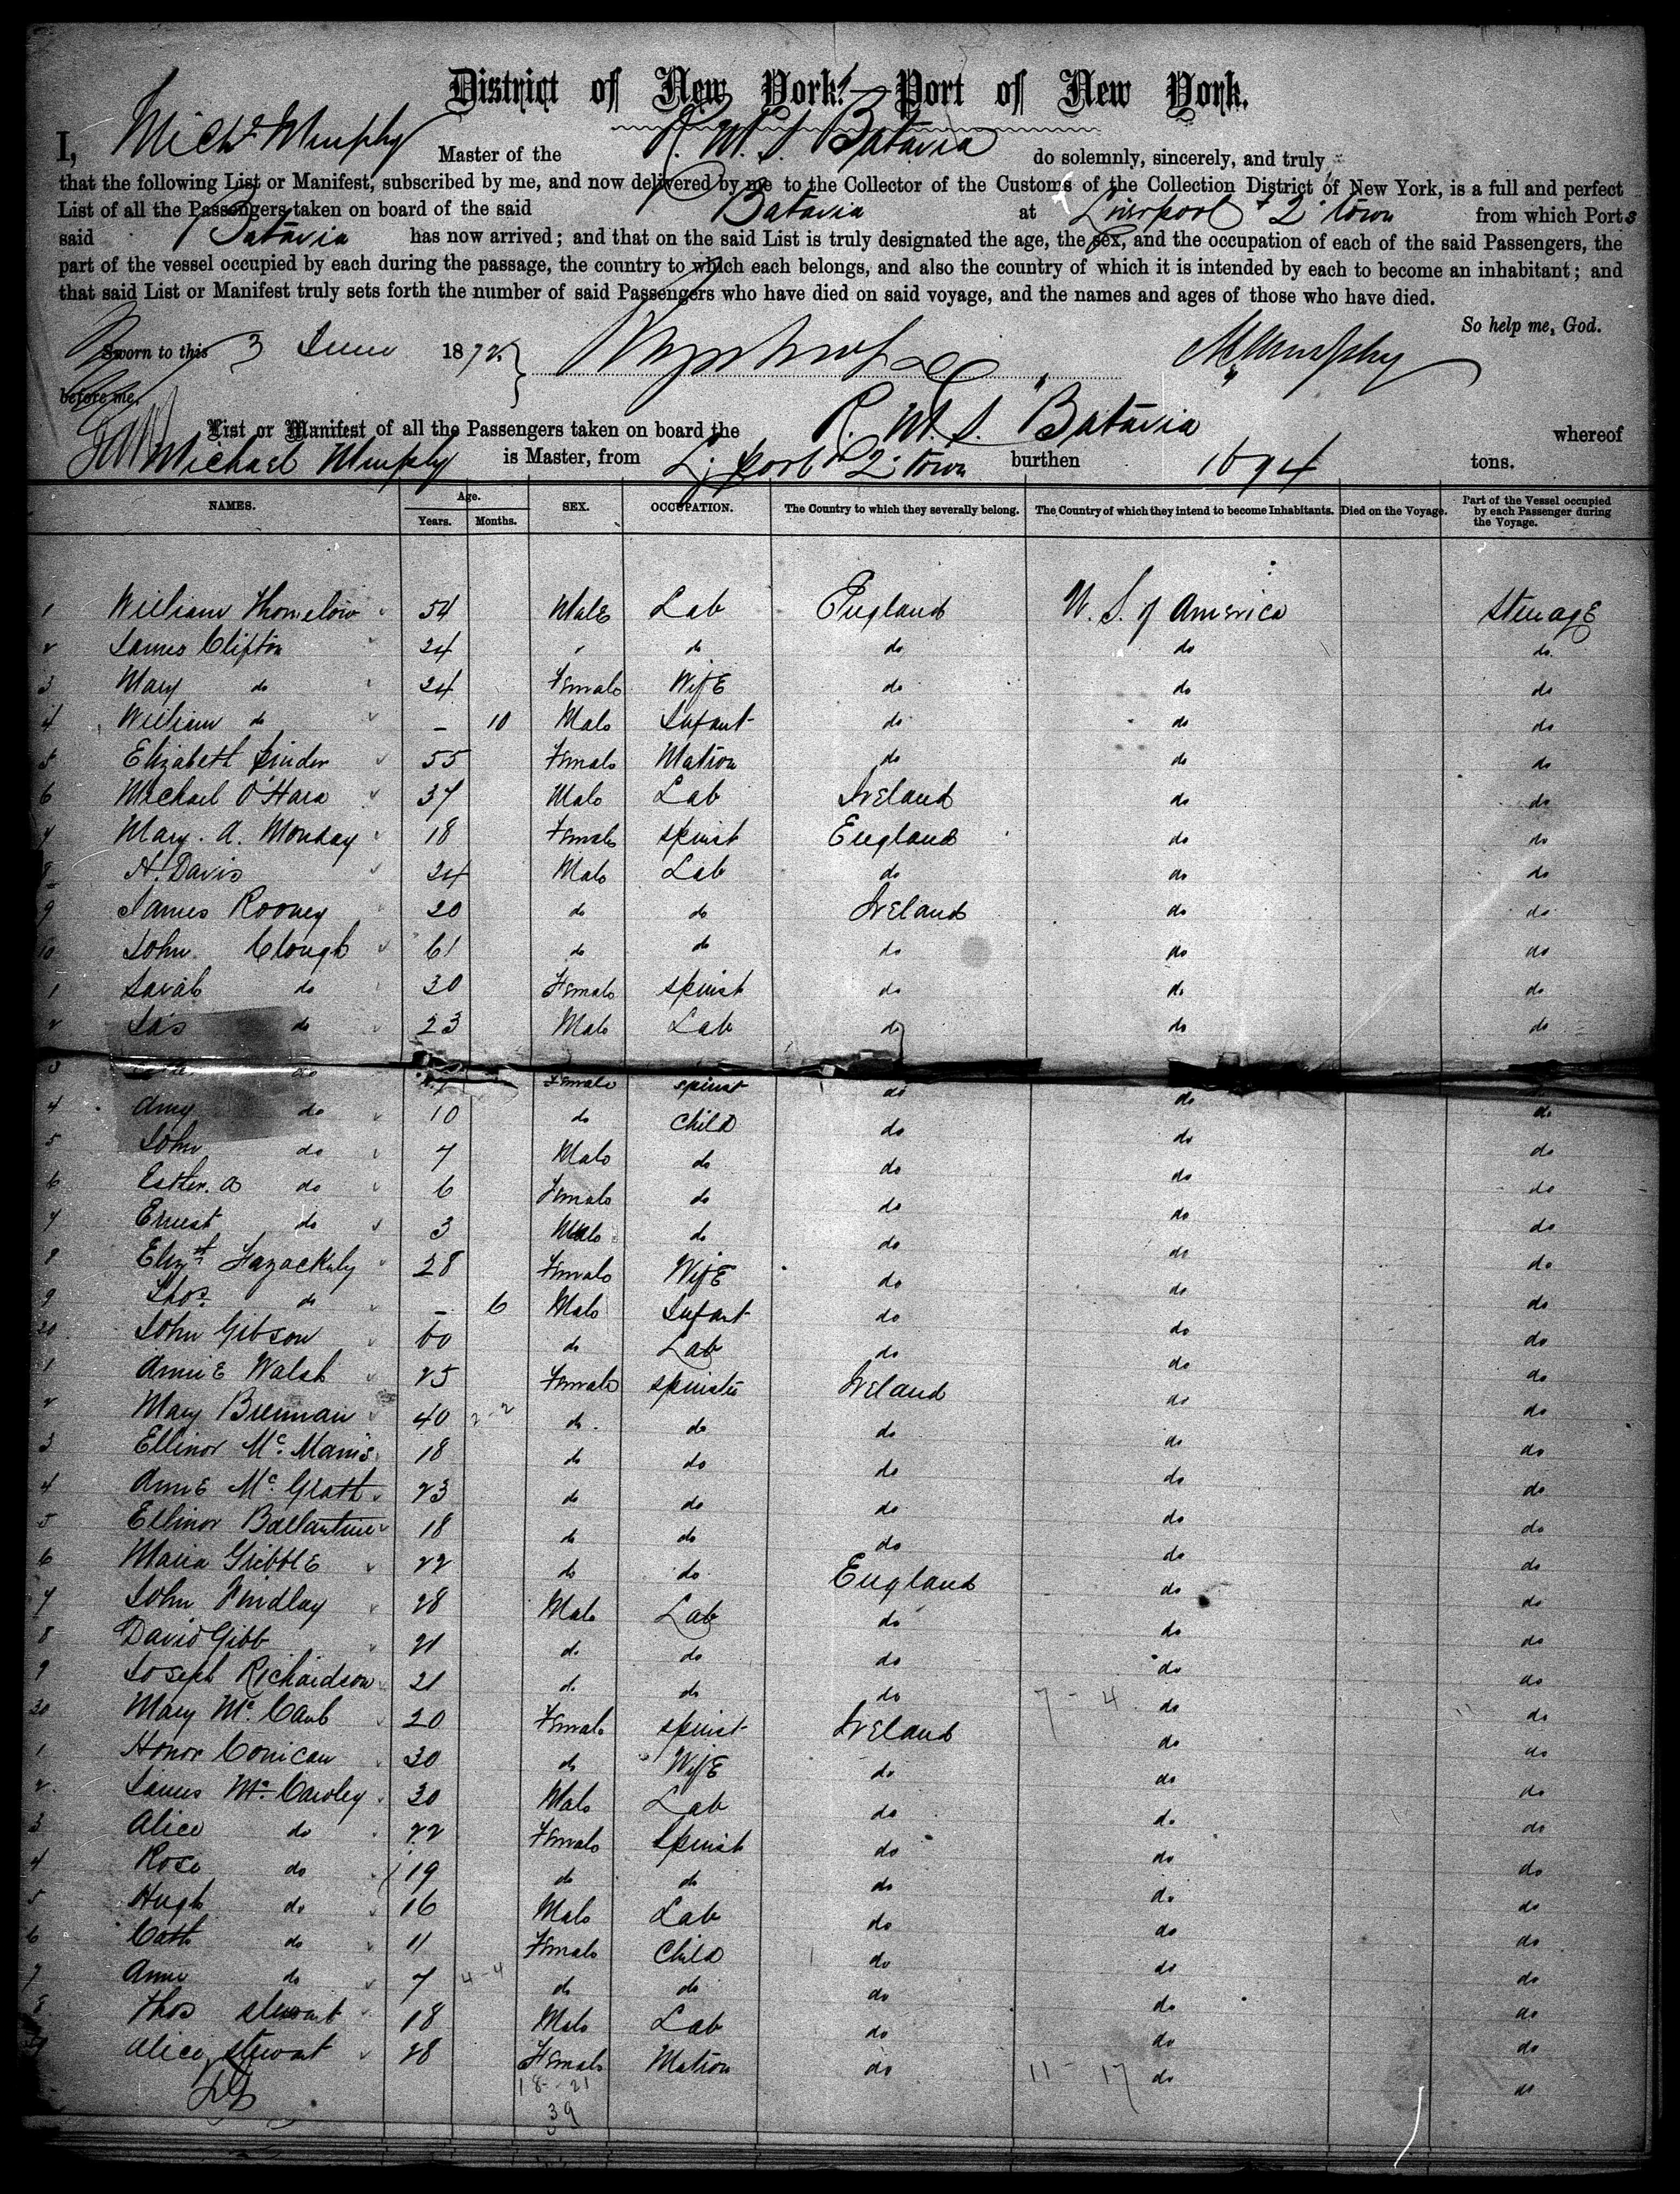 District of New York—Port of New York.
I, Michl Murphy Master of the R. M. S. Batavia do solemnly, sincerely, and truly
that the following List or Manifest, subscribed by me, and now delivered by me to the Collector of the Customs of the Collection District of New York, is a full and perfect
List of all the Passengers taken on board of the said Batavia at Liverpool & Q. town from which Ports
said Batavia has now arrived; and that on the said List is truly designated the age, the sex, and the occupation of each of the said Passengers, the
part of the vessel occupied by each during the passage, the country to which each belongs, and also the country of which it is intended by each to become an inhabitant; and
that said List or Manifest truly sets forth the number of said Passengers who have died on said voyage, and the names and ages of those who have died.
So help me, God.
Sworn to this 3 June 1872 M. Murphy
before me,
List or Manifest of all the Passengers taken on board the R. M. S. Batavia whereof
Michael Murphy is Master, from L. pool & Q. town burthen 1694 tons.
NAMES. Age. Years. Months. SEX. OCCUPATION. The Country to which they severally belong. The Country of which they intend to become Inhabitants. Died on the Voyage. Part of the Vessel occupied by each Passenger during the Voyage.
1 William Thomelow 54 Male Lab England U. S. of America Steerage
2 James Clifton 24 " do do do do
3 Mary do 24 Female Wife do do do
4 William do – 10 Male Infant do do do
5 Elizabeth Pinder 55 Female Matron do do do
6 Michael O'Hara 37 Male Lab Ireland do do
7 Mary. A. Monday 18 Female Spinst England do do
8 H. Davis 24 Male Lab do do do
9 James Rooney 20 do do Ireland do do
10 John Clough 61 do do do do do
1 Sarah do 30 Female Spinst do do do
2 Jas do 23 Male Lab do do do
3 do Female Spinst do do do
4 Amy do 10 do Child do do do
5 John do 7 Male do do do do
6 Esther. A do 6 Female do do do do
7 Ernest do 3 Male do do do do
8 Elizth Fazackerly 28 Female Wife do do do
9 Thos. do – 6 Male Infant do do do
20 John Gibson 60 do Lab do do do
1 Annie Walsh 25 Female Spinster Ireland do do
2 Mary Brennan 40 2-2 do do do do do
3 Ellinor Mc. Manis 18 do do do do do
4 Annie Mc. Grath 23 do do do do do
5 Ellinor Ballantine 18 do do do do do
6 Maria Gribble 22 do do England do do
7 John Findlay 28 Male Lab do do do
8 David Gibb 21 do do do do do
9 Joseph Richardson 21 do do do 7 - 4 do do
30 Mary Mc. Canb 20 Female Spinst Ireland do do
1 Honor Conican 30 do Wife do do do
2 James Mc. Cawley 30 Male Lab do do do
3 Alice do 22 Female Spinst do do do
4 Rose do 19 do do do do do
5 Hugh do 16 Male Lab do do do
6 Cath do 11 Female Child do do do
7 Anne do 7 4-4 do do do do do
8 Thos Stewart 18 Male Lab do do do
9 Alice Stewart 28 Female Matron do 11 - 17 do do
18 - 21
39